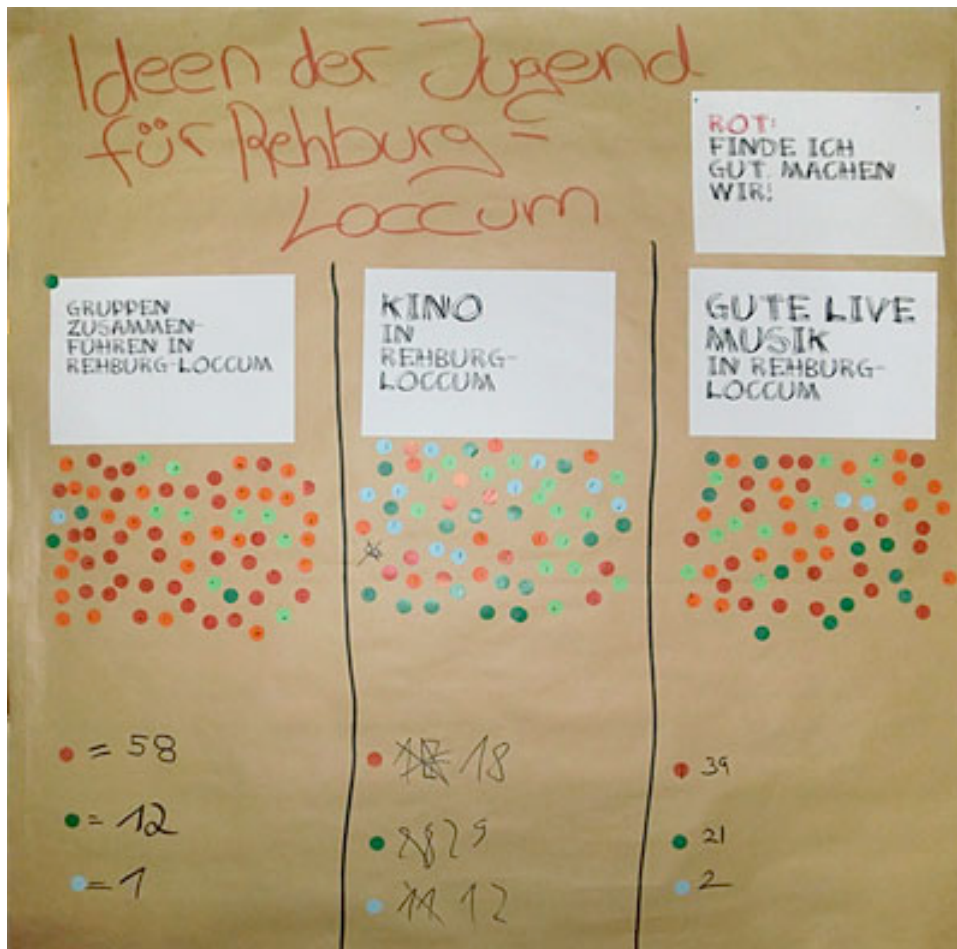 Ideen der Jugend
für Rehburg-
Loccum
ROT:
FINDE ICH
GUT. MACHEN
WIR!
GRUPPEN
ZUSAMMEN-
FÜHREN IN
REHBURG-LOCCUM
KINO
IN
REHBURG-
LOCCUM
GUTE LIVE
MUSIK
IN REHBURG-
LOCCUM
= 58
= 12
= 1
18
29
12
39
21
2